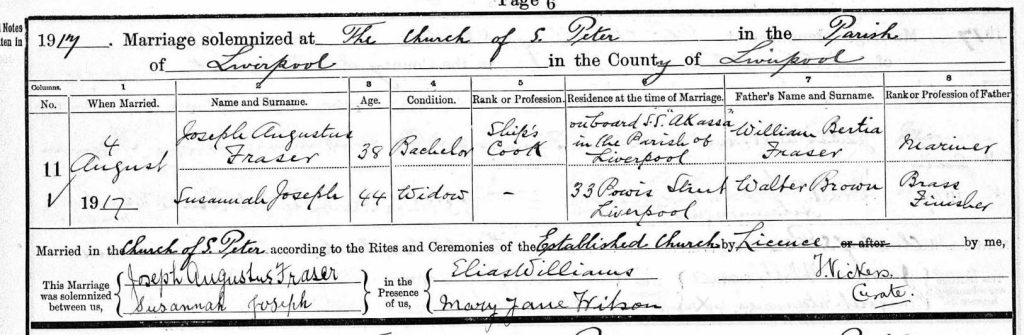 Page 6
Notes
1917. Marriage solemnized at The Church of S. Peter in the Parish
of Liverpool in the County of Liverpool
Columns. 1 2 3 4 5 6 7 8
No. When Married. Name and Surname. Age. Condition. Rank or Profession. Residence at the time of Marriage. Father's Name and Surname. Rank or Profession of Father
11 4 August 1917 Joseph Augustus Fraser 38 Bachelor Ship's Cook on board S.S. "Akassa" in the Parish of Liverpool William Bertia Fraser Mariner
Susannah Joseph 44 Widow - 33 Powis Street Liverpool Walter Brown Brass Finisher
Married in the Church of S. Peter according to the Rites and Ceremonies of the Established Church by Licence or after by me,
This Marriage was solemnized between us, Joseph Augustus Fraser Susannah Joseph in the Presence of us, Elias Williams Mary Jane Wilson
Vickers.
Curate.